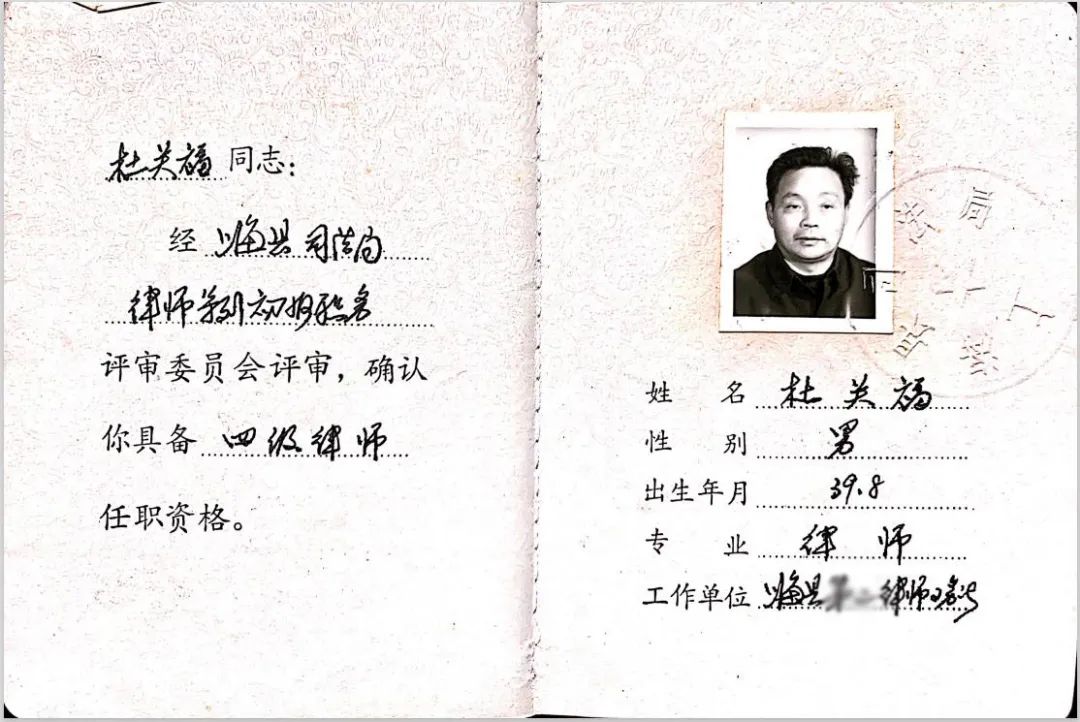 杜关福 同志：
经 临县司法局
律师系列初级职务
评审委员会评审，确认
你具备 四级律师
任职资格。
姓 名 杜关福
性 别 男
出生年月 39.8
专 业 律师
工作单位 临县 律师事务所